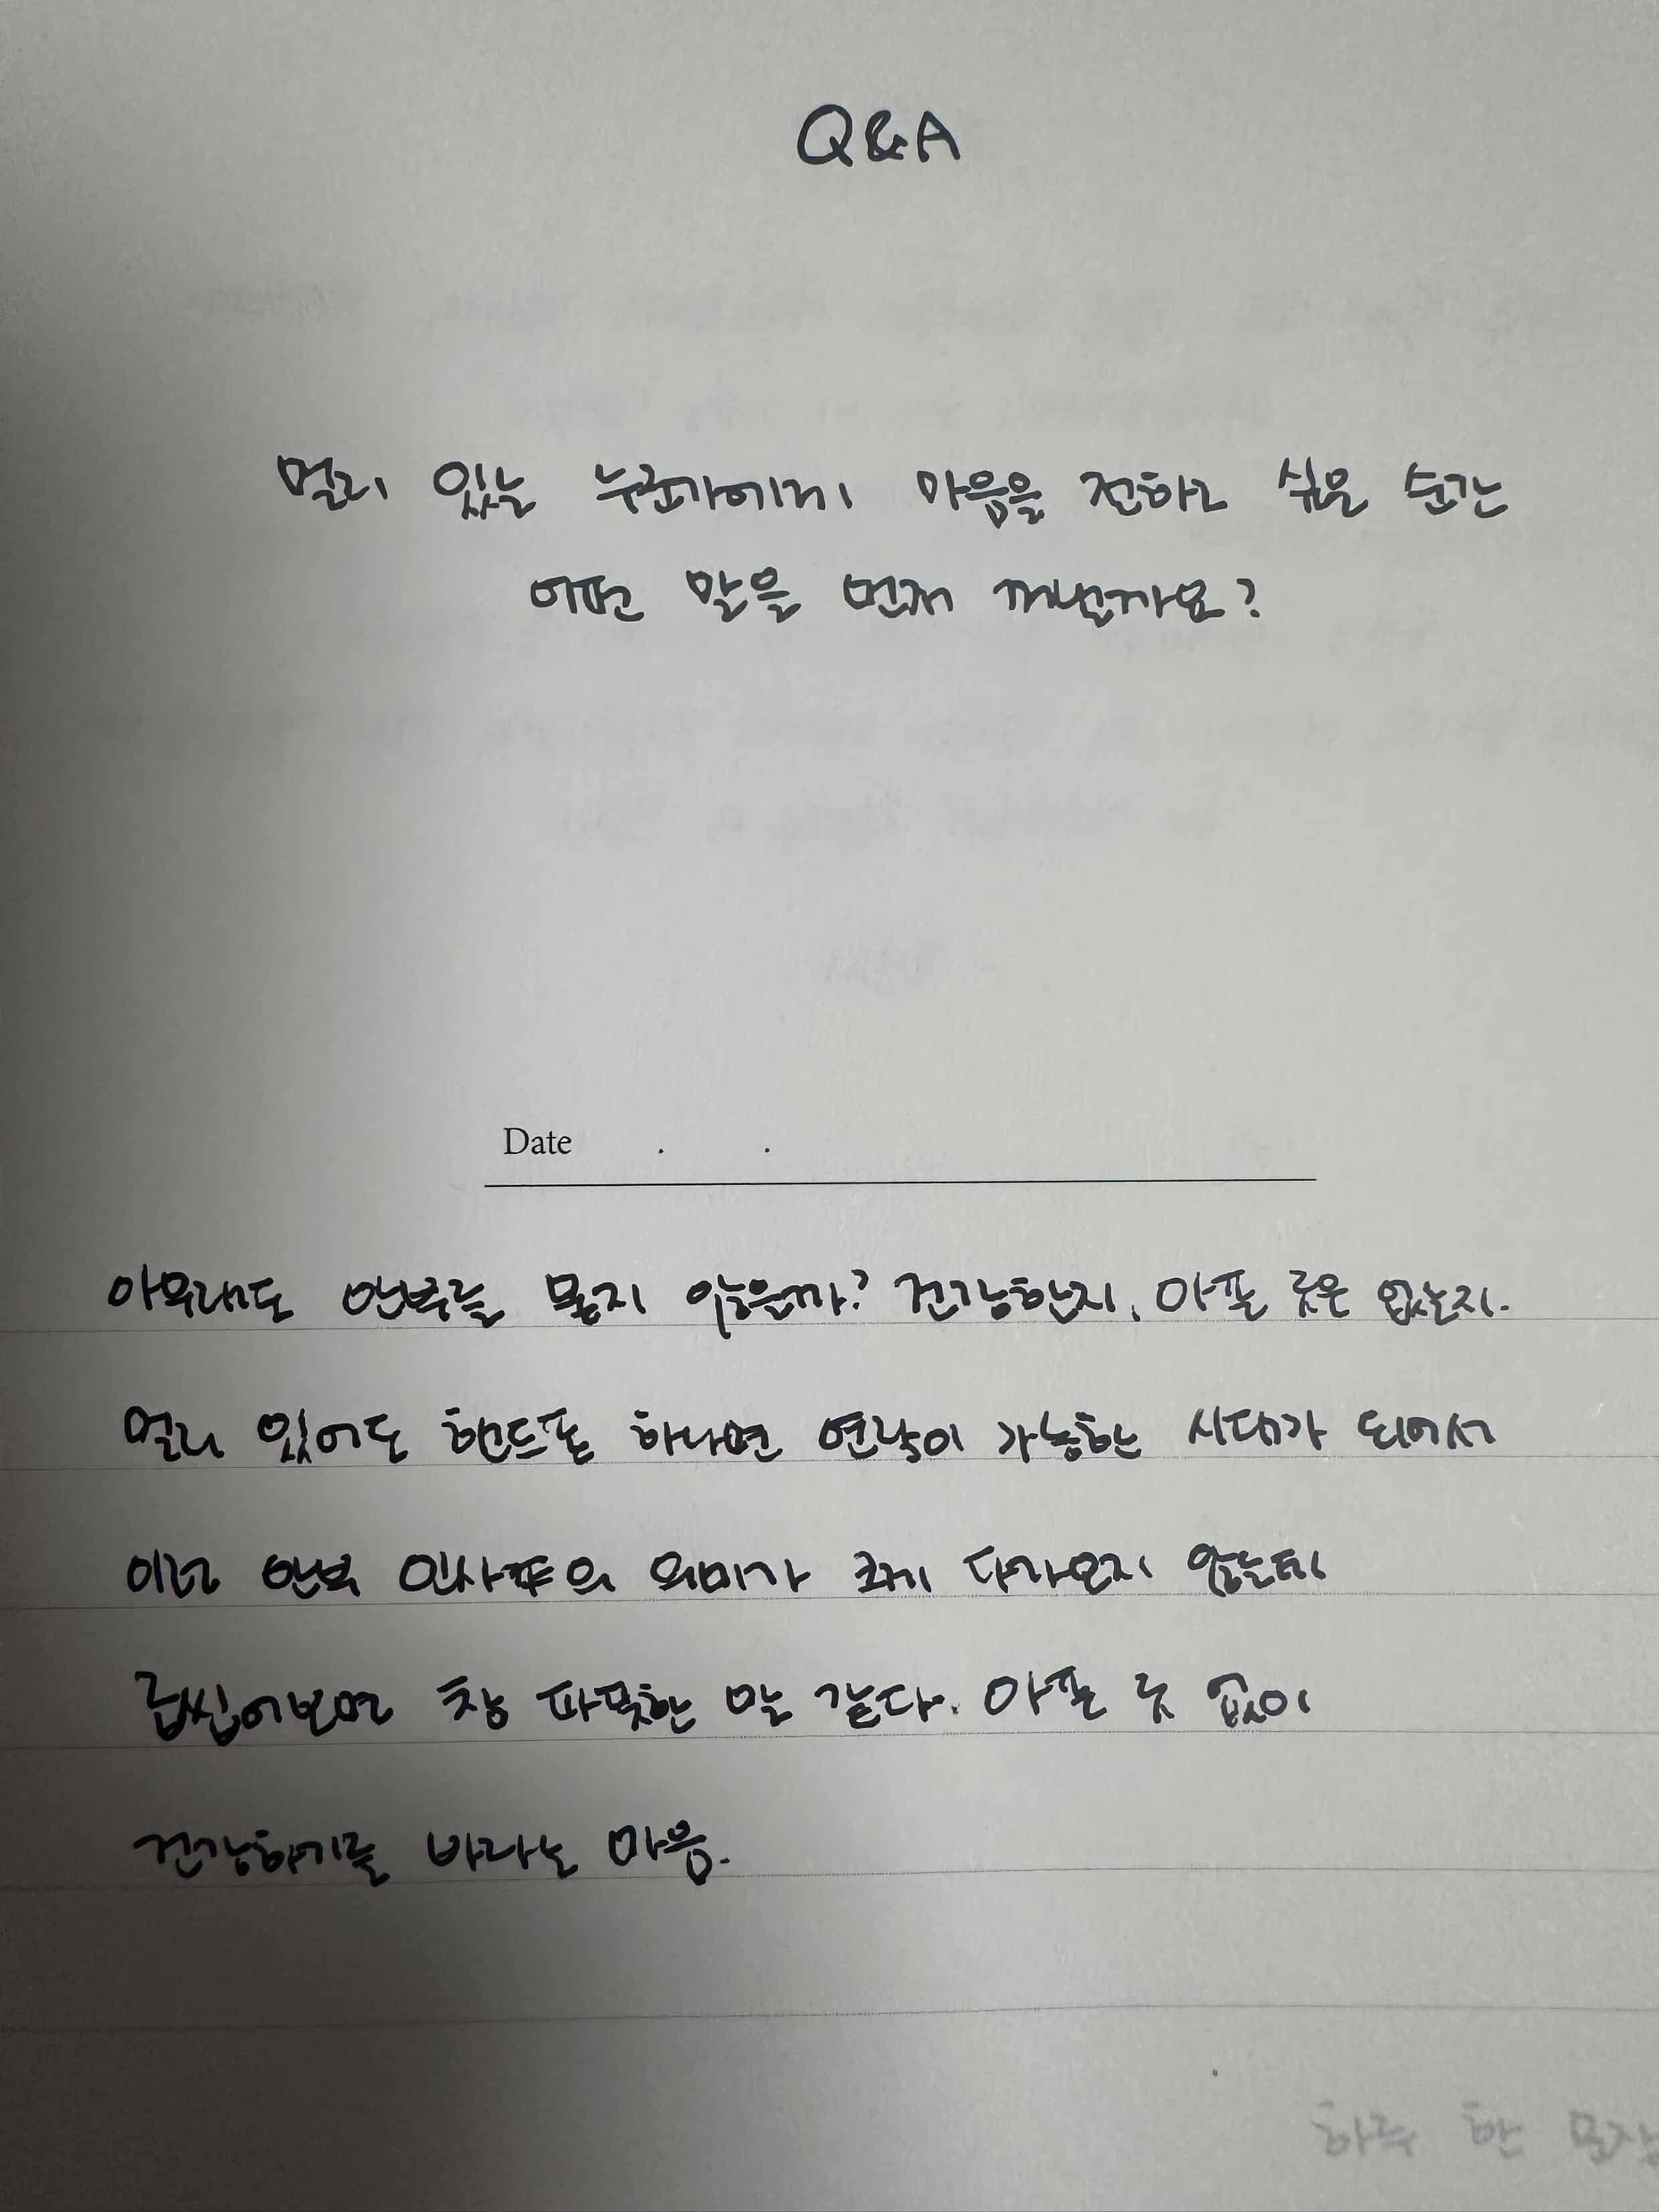 Q&A
멀리 있는 누군가에게 마음을 전하고 싶은 순간
어떤 말을 먼저 꺼낸가요?
Date . .
아무래도 안부를 묻지 않을까? 건강한지, 아픈 곳은 없는지.
멀리 있어도 핸드폰 하나면 연락이 가능한 시대가 되어서
이런 안부 인사말의 의미가 크게 다가오지 않는데
곱씹어보면 참 따뜻한 말 같다. 아픈 곳 없이
건강하기를 바라는 마음.
하루 한 문장